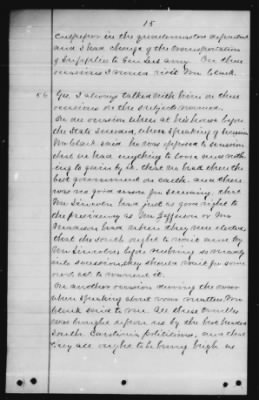 15
Culpeper in the quartermasters department
and I had charge of the transportation
of supplies to Gen Lees army. On these
occasions I would visit Mr Clark.
56 Yes. I always talked with him on these
occasions on the subject named.
On one occasion when at his house before
the State seceded, when speaking of secession
Mr Clark said he was opposed to secession
that he had everything to loose and noth-
ing to gain by it. That we had then the
best government on earth. and there
was no good reason for seceding, that
Mr Lincoln had just as good right to
the presidency as Mr Jefferson or Mr
Madison had when they were elected,
that the South ought to wait and try
Mr Lincolns before rushing so madly
into secession, they should wait for some
overt act to warrant it.
On another occasion during the war
when speaking about war matters Mr
Clark said to me. All these troubles
was brought upon us by the hot headed
South Carolina politicians, and that
they all ought to be hung high as